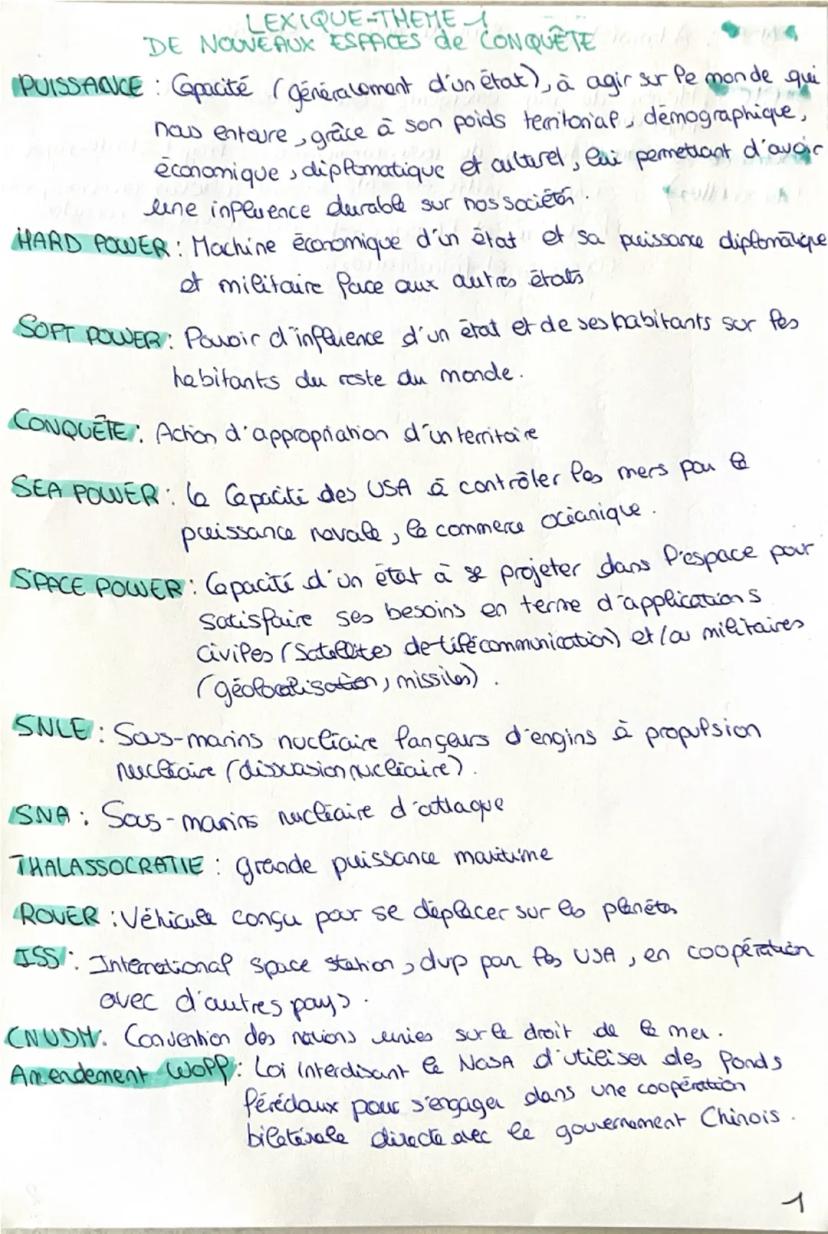 LEXIQUE-THEME 1
DE NOUVEAUX ESPACES de CONQUÊTE
PUISSANCE : Capacité (généralement d'un état), à agir sur le monde qui
nous entoure, grâce à son poids territorial, démographique,
économique, diplomatique et culturel, lui permettant d'avoir
une influence durable sur nos sociétés.
HARD POWER : Machine économique d'un état et sa puissance diplomatique
et militaire face aux autres états
SOFT POWER : Pouvoir d'influence d'un état et de ses habitants sur les
habitants du reste du monde.
CONQUÊTE : Action d'appropriation d'un territoire
SEA POWER : la capacité des USA à contrôler les mers par la
puissance navale, le commerce océanique.
SPACE POWER : Capacité d'un état à se projeter dans l'espace pour
satisfaire ses besoins en terme d'applications
civiles (satellites de télécommunication) et/ou militaires
(géolocalisation, missiles).
SNLE : Sous-marins nucléaire lanceurs d'engins à propulsion
nucléaire (dissuasion nucléaire).
SNA : Sous-marins nucléaire d'attaque
THALASSOCRATIE : grande puissance maritime
ROVER : Véhicule conçu pour se déplacer sur les planètes
ISS : International space station, dvp par les USA, en coopération
avec d'autres pays.
CNUDM : Convention des nations unies sur le droit de la mer.
Amendement WOLF : Loi interdisant la NASA d'utiliser des fonds
férédaux pour s'engager dans une coopération
bilatérale directe avec le gouvernement Chinois.
1